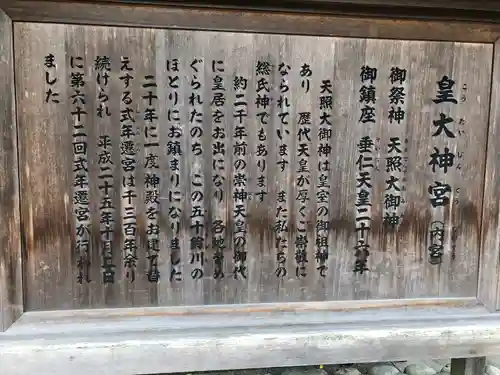 皇大神宮（内宮）
こうたいじんぐう
ないくう
御祭神　天照大御神
御鎮座　垂仁天皇二十六年
天照大御神は皇室の御祖神で
あり　歴代天皇が厚くご崇敬に
なられています　また私たちの
総氏神でもあります
約二千年前の崇神天皇の御代
に皇居をお出になり　各地をめ
ぐられたのち　この五十鈴川の
ほとりにお鎮まりになりました
二十年に一度神殿をお建て替
えする式年遷宮は千三百年余り
続けられ　平成二十五年十月二日
に第六十二回式年遷宮が行われ
ました